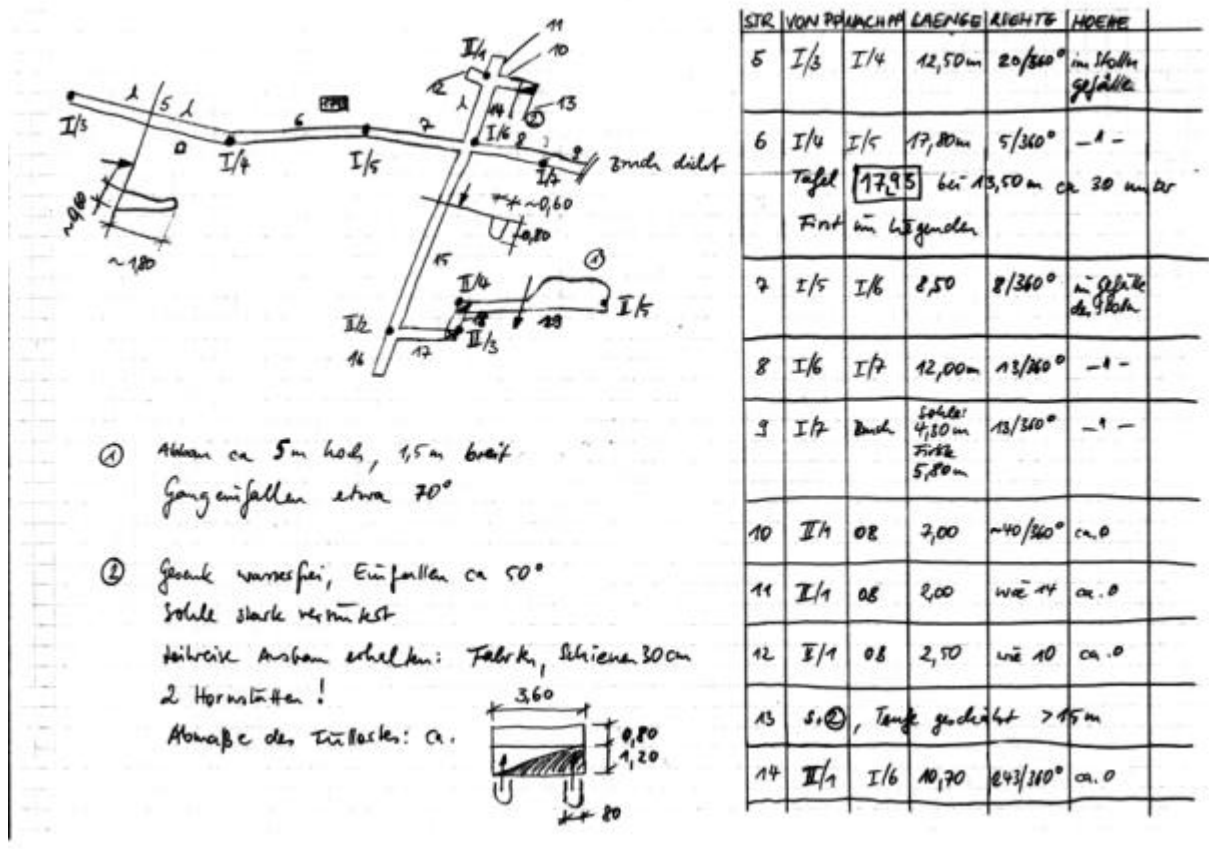 11
II/1
10
12
13
l
14
②
I/3
l 5 l
6
7
I/6
8
9
I/4
I/5
I/7
Bruch dicht
~0,60
~0,60
~0,80
~1,80
15
①
II/4
18
19
II/5
II/2
II/3
16
17
① Abbau ca 5m hoch, 1,5m breit
Gangeinfallen etwa 70°
② Gesenk wasserfrei, Einfallen ca 50°
Sohle stark
teilweise Ausbau erhalten: Fahrten, Schienen 30cm
2 Hornstätten!
Abmaße des Füllortes: ca.
3,60
0,80
1,20
80
STR VON PP NACH PP LAENGE RICHTG HOEHE
5 I/3 I/4 12,50m 20/360° im Stollen
gefälle
6 I/4 I/5 17,80m 5/360° -"-
Tafel 17,93 bei 13,50m ca 30 unter
First im Liegenden
7 I/5 I/6 8,50 8/360° im Gefälle
8 I/6 I/7 12,00m 13/360° -"-
9 I/7 Bruch Sohle: 4,80m Firste 5,80m 13/360° -"-
10 II/1 OB 7,00 ~40/360° ca. 0
11 II/1 OB 2,00 wie 14 ca. 0
12 II/1 OB 2,50 wie 10 ca. 0
13 s. ②, Teufe geschätzt >15m
14 II/1 I/6 10,70 243/360° ca. 0